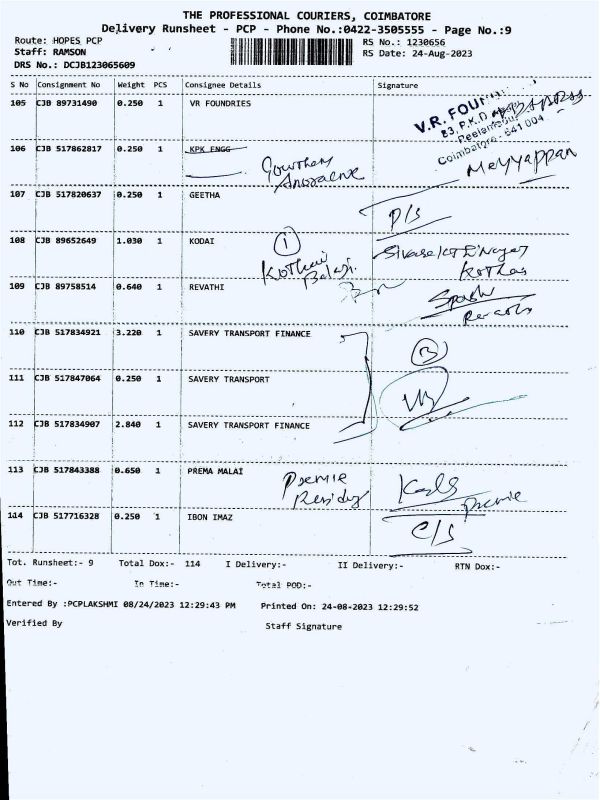 THE PROFESSIONAL COURIERS, COIMBATORE
Delivery Runsheet - PCP - Phone No.:0422-3505555 - Page No.:9
Route: HOPES PCP RS No.: 1230656
Staff: RAMSON RS Date: 24-Aug-2023
DRS No.: DCJB123065609
S No Consignment No Weight PCS Consignee Details Signature
105 CJB 89731490 0.250 1 VR FOUNDRIES
V.R. FOUN
83, P.K.D
Peelamedu
Coimbatore - 641 004
106 CJB 517862817 0.250 1 KPK ENGG
Gowtham
Meyyappan
107 CJB 517820637 0.250 1 GEETHA
P/S
108 CJB 89652649 1.030 1 KODAI
1
Kothai
Balaji
109 CJB 89758514 0.640 1 REVATHI
110 CJB 517834921 3.220 1 SAVERY TRANSPORT FINANCE
111 CJB 517847064 0.250 1 SAVERY TRANSPORT
112 CJB 517834907 2.840 1 SAVERY TRANSPORT FINANCE
113 CJB 517843388 0.650 1 PREMA MALAI
Premie
114 CJB 517716328 0.250 1 IBON IMAZ
C/S
Tot. Runsheet:- 9 Total Dox:- 114 I Delivery:- II Delivery:- RTN Dox:-
Out Time:- In Time:- Total POD:-
Entered By :PCPLAKSHMI 08/24/2023 12:29:43 PM Printed On: 24-08-2023 12:29:52
Verified By Staff Signature